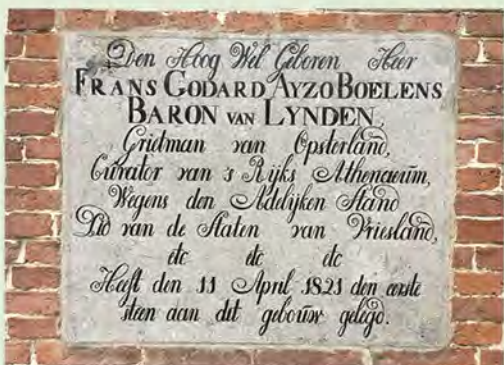 Den Hoog Wel Geboren Heer
FRANS GODARD AYZO BOELENS
BARON VAN LYNDEN,
Grietman van Opsterland,
Curator van 's Rijks Athenaeum,
Wegens den Adelijken Stand
Lid van de Staten van Vriesland,
etc etc etc
Heeft den 11 April 1821 den eerste
steen aan dit gebouw gelegd.